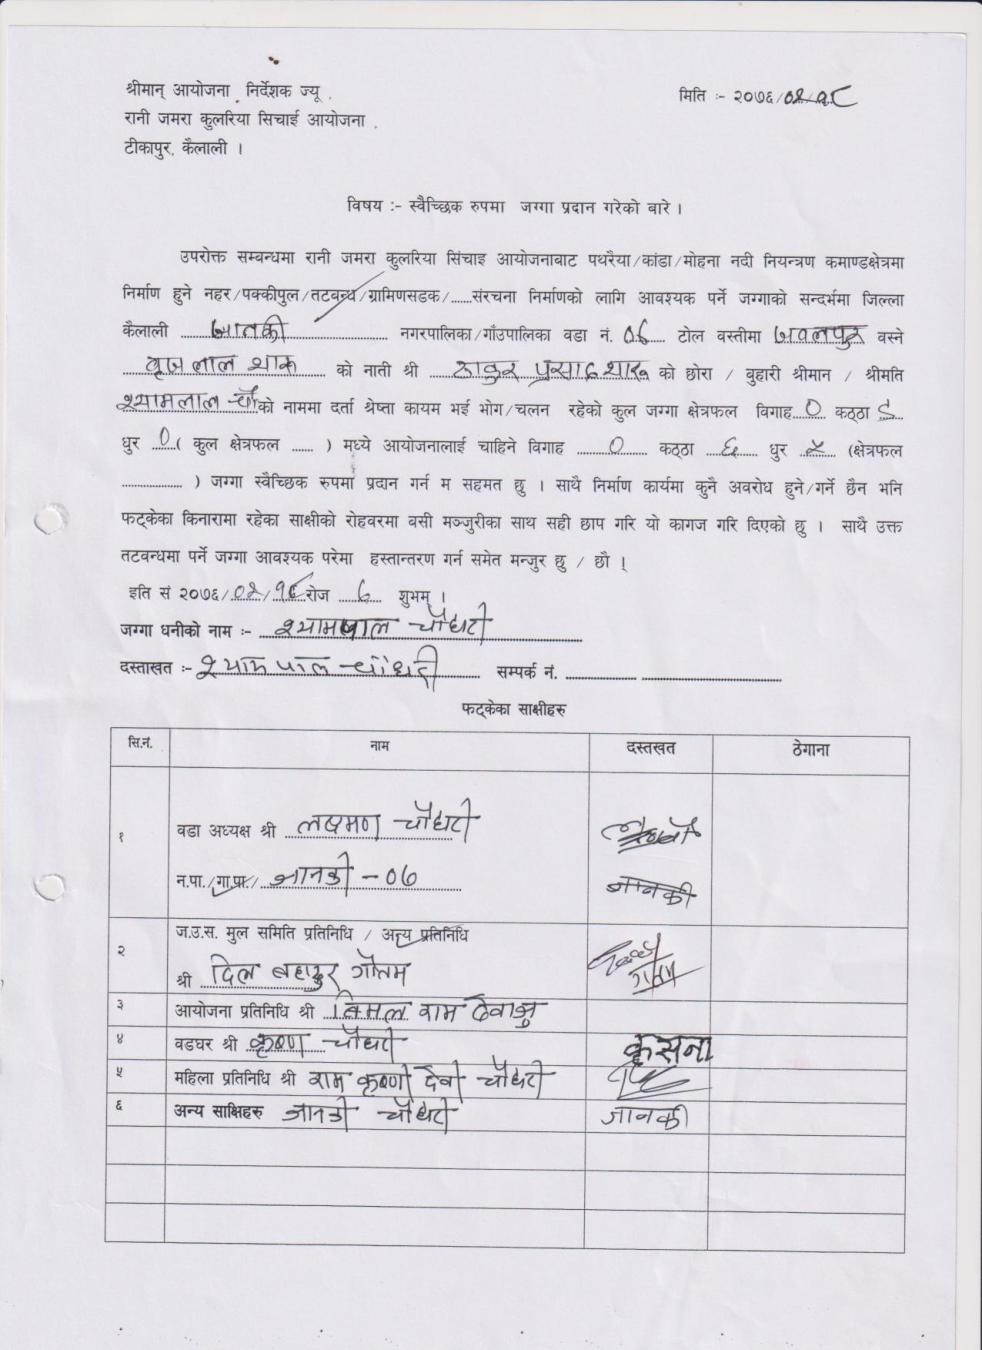 श्रीमान् आयोजना निर्देशक ज्यू,
मिति :- २०७६/०२/१८
रानी जमरा कुलरिया सिचाई आयोजना,
टीकापुर, कैलाली ।
विषय :- स्वैच्छिक रुपमा जग्गा प्रदान गरेको बारे ।
उपरोक्त सम्बन्धमा रानी जमरा कुलरिया सिंचाइ आयोजनाबाट पथरैया/कांडा/मोहना नदी नियन्त्रण कमाण्डक्षेत्रमा
निर्माण हुने नहर/पक्कीपुल/तटबन्ध/ग्रामिणसडक/......संरचना निर्माणको लागि आवश्यक पर्ने जग्गाको सन्दर्भमा जिल्ला
कैलाली जानकी नगरपालिका/गाँउपालिका वडा नं. टोल वस्तीमा जबलपुर वस्ने
बृज लाल थारू को नाती श्री ठाकुर प्रसाद थारू को छोरा / बुहारी श्रीमान / श्रीमति
श्यामलाल चौ को नाममा दर्ता श्रेष्ता कायम भई भोग/चलन रहेको कुल जग्गा क्षेत्रफल विगाह 0 कठ्ठा
धुर 0 ( कुल क्षेत्रफल ...... ) मध्ये आयोजनालाई चाहिने विगाह 0 कठ्ठा ६ धुर (क्षेत्रफल
.................. ) जग्गा स्वैच्छिक रुपमा प्रदान गर्न म सहमत छु । साथै निर्माण कार्यमा कुनै अवरोध हुने/गर्ने छैन भनि
फट्केका किनारामा रहेका साक्षीको रोहवरमा बसी मञ्जुरीका साथ सही छाप गरि यो कागज गरि दिएको छु । साथै उक्त
तटवन्धमा पर्ने जग्गा आवश्यक परेमा हस्तान्तरण गर्न समेत मन्जुर छु / छौ ।
इति सं २०७६/०२/१८ रोज शुभम् ।
जग्गा धनीको नाम :- श्यामलाल चौधरी
दस्ताखत :- श्यामलाल चौधरी सम्पर्क नं. ................................
फट्केका साक्षीहरु
सि.नं. नाम दस्तखत ठेगाना
१ वडा अध्यक्ष श्री लक्ष्मण चौधरी
न.पा./गा.पा./ जानकी - 06 जानकी
२ ज.उ.स. मुल समिति प्रतिनिधि / अन्य प्रतिनिधि
श्री दिल बहादुर गौतम
३ आयोजना प्रतिनिधि श्री बिमल राम
४ वडघर श्री कृष्ण चौधरी कृसना
५ महिला प्रतिनिधि श्री राम कृष्णी देवी चौधरी
६ अन्य साक्षिहरु जानकी चौधरी जानकी